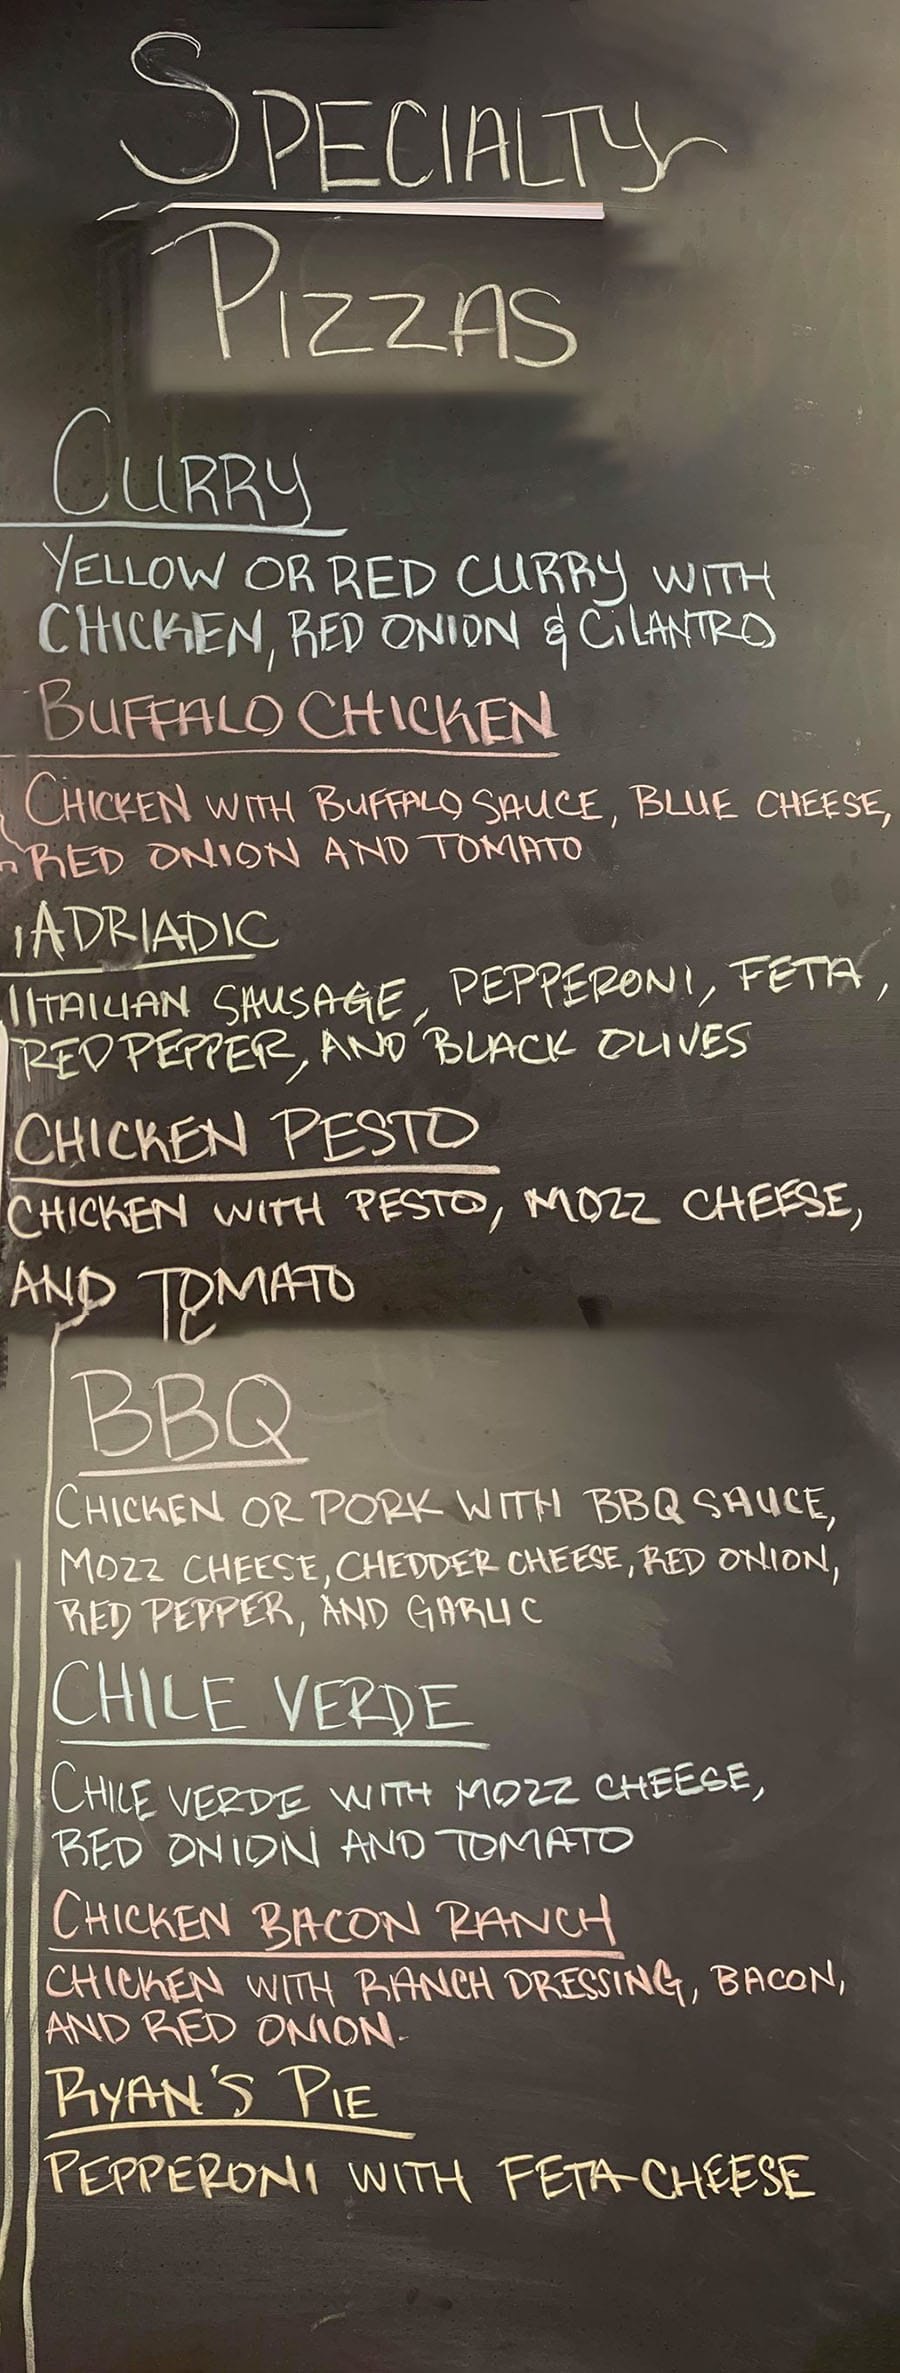 SPECIALTY
PIZZAS
CURRY
YELLOW OR RED CURRY WITH
CHICKEN, RED ONION & CILANTRO
BUFFALO CHICKEN
CHICKEN WITH BUFFALO SAUCE, BLUE CHEESE,
RED ONION AND TOMATO
ADRIADIC
ITAILIAN SAUSAGE, PEPPERONI, FETA,
RED PEPPER, AND BLACK OLIVES
CHICKEN PESTO
CHICKEN WITH PESTO, MOZZ CHEESE,
AND TOMATO
BBQ
CHICKEN OR PORK WITH BBQ SAUCE,
MOZZ CHEESE, CHEDDER CHEESE, RED ONION,
RED PEPPER, AND GARLIC
CHILE VERDE
CHILE VERDE WITH MOZZ CHEESE,
RED ONION AND TOMATO
CHICKEN BACON RANCH
CHICKEN WITH RANCH DRESSING, BACON,
AND RED ONION.
RYAN'S PIE
PEPPERONI WITH FETA CHEESE